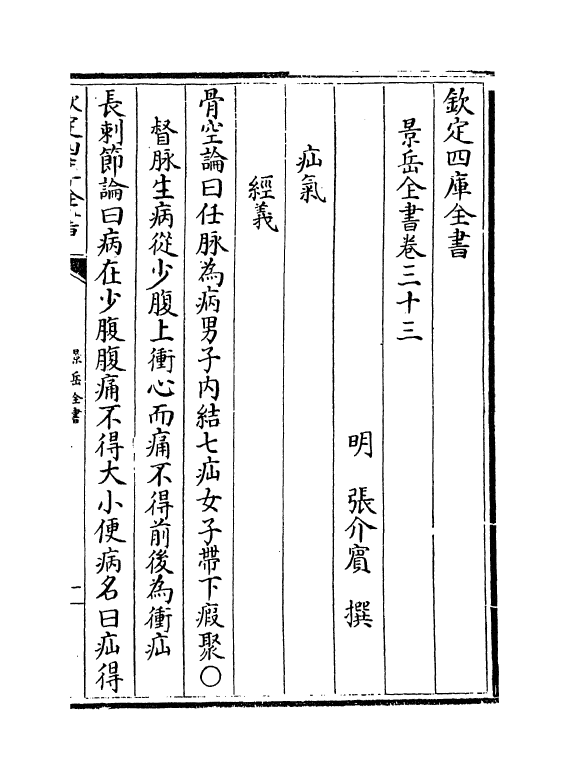 欽定四庫全書
景岳全書卷三十三
明 張介賓 撰
疝氣
經義
骨空論曰任脉為病男子内結七疝女子帶下瘕聚〇
督脉生病從少腹上衝心而痛不得前後為衝疝
長刺節論曰病在少腹腹痛不得大小便病名曰疝得
欽定四庫全書
景岳全書